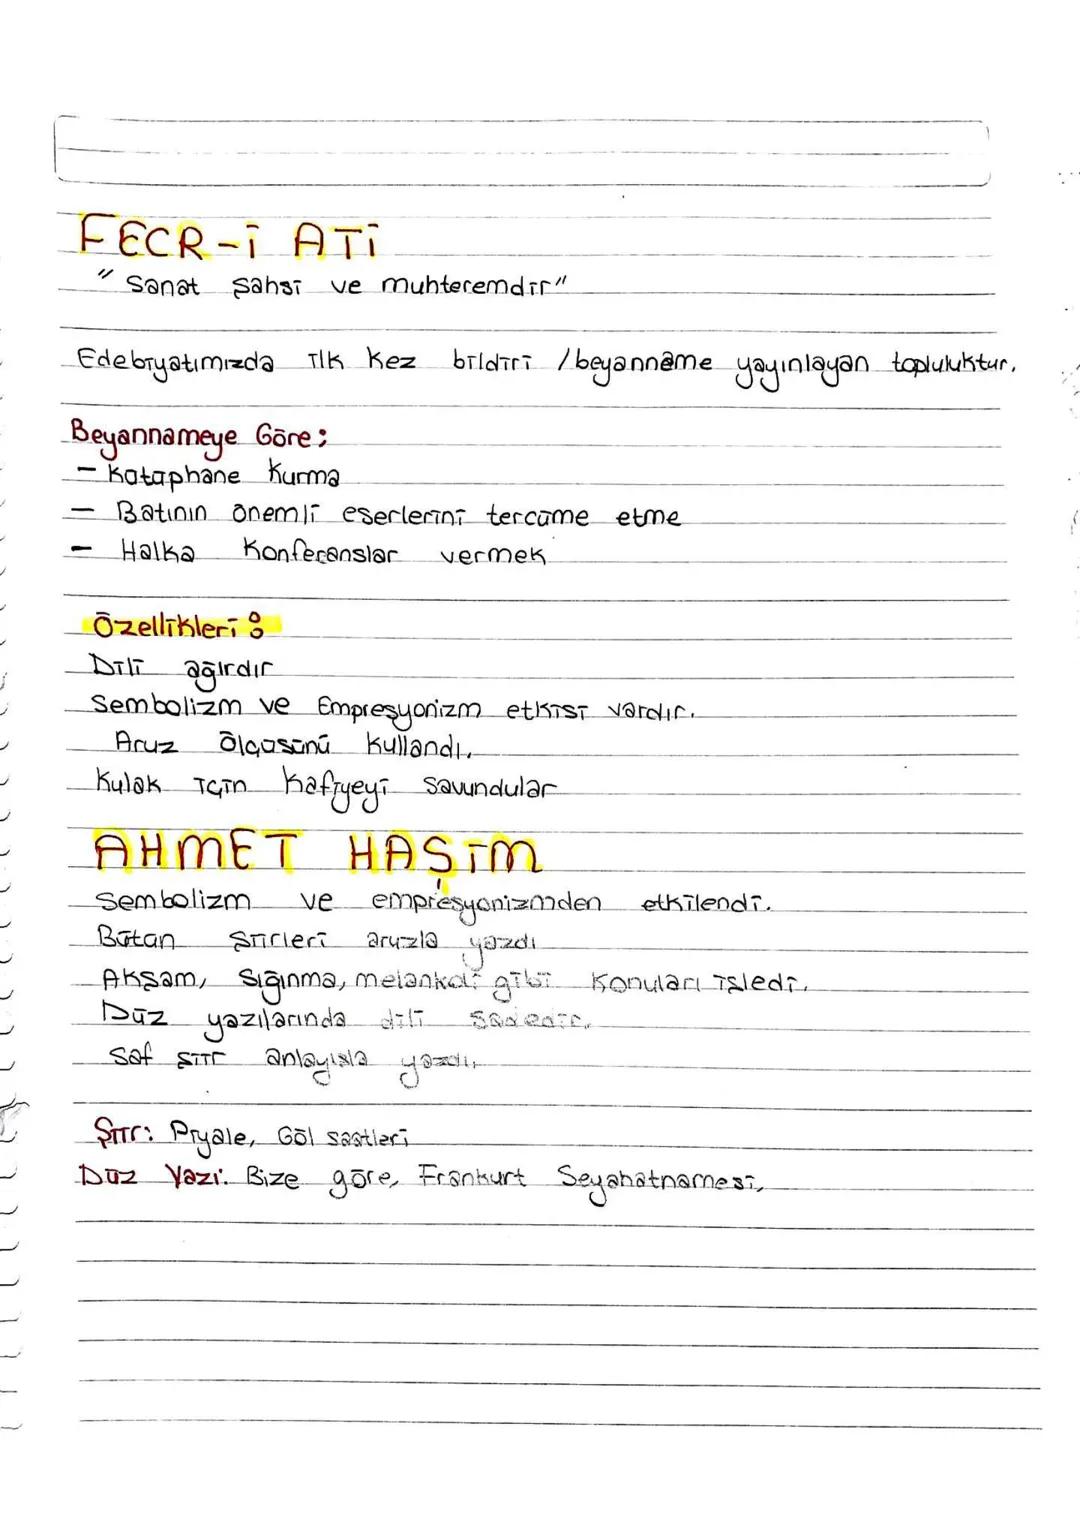 FECR-İ ATİ
"Sanat şahsi ve muhteremdir"
Edebiyatımızda ilk kez bildiri / beyanname yayınlayan topluluktur.
Beyannameye Göre:
- Kütüphane Kurma
- Batının önemli eserlerini tercüme etme
- Halka Konferanslar vermek
Özellikleri:
Dili ağırdır
Sembolizm ve Empresyonizm etkisi vardır.
Aruz ölçüsünü Kullandı.
Kulak için Kafiyeyi savundular
AHMET HAŞİM
Sembolizm ve empresyonizmden etkilendi.
Bütün şiirleri aruzla yazdı
Akşam, sığınma, melankoli gibi Konuları işledi.
Düz yazılarında dili sadedir.
Saf şiir anlayışla yazdı.
Şiir: Piyale, Göl saatleri
Düz Yazı: Bize göre, Frankurt Seyahatnamesi,